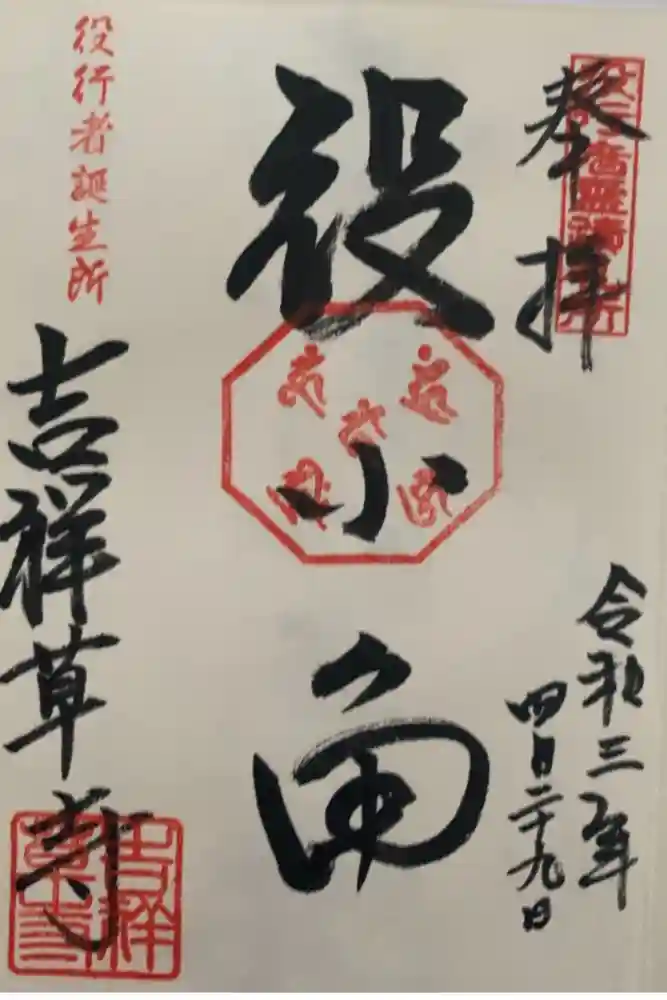 奉拝
役行者霊蹟札所
令和三年
四月二十九日
役小角
役行者誕生所
吉祥草寺
吉祥
草寺